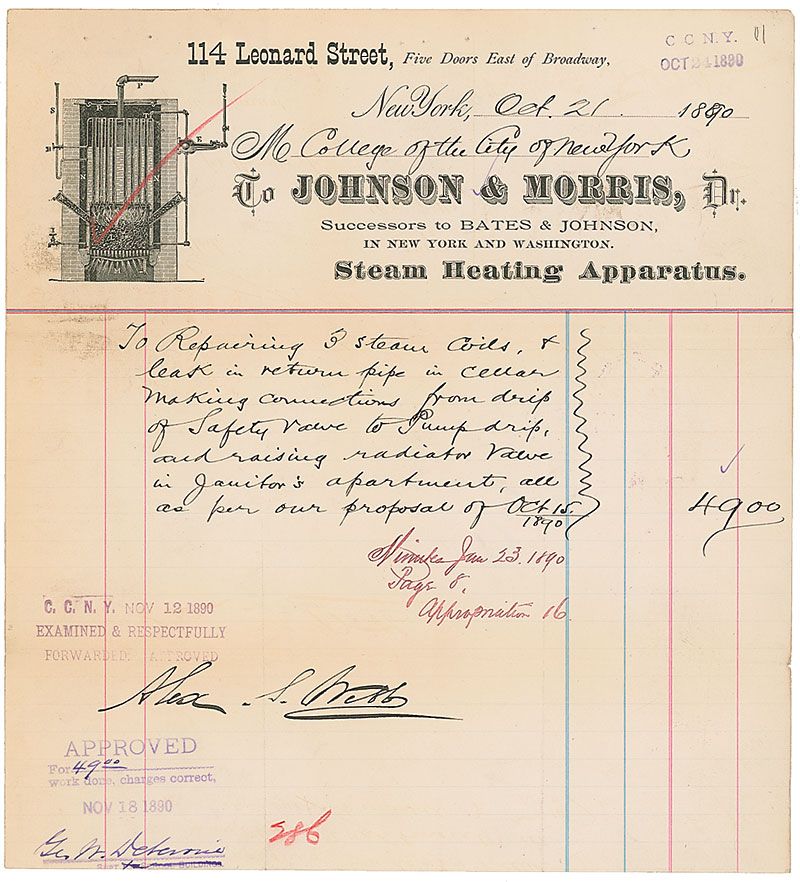 C C N.Y.
OCT 24 1890
114 Leonard Street, Five Doors East of Broadway,
New York, Oct. 21. 1890
M College of the City of New York
To JOHNSON & MORRIS, Dr.
Successors to BATES & JOHNSON,
IN NEW YORK AND WASHINGTON.
Steam Heating Apparatus.
To Repairing 3 steam coils, &
leak in return pipe in cellar
Making connections from drip
of Safety Valve to Pump drip,
and raising radiator Valve
in Janitor's apartment, all
as per our proposal of Oct 15. 49 00
1890
Minutes Jan 23. 1890
Page 8.
Appropriation 16
C. C. N. Y. NOV 12 1890
EXAMINED & RESPECTFULLY
FORWARDED. APPROVED
Alex. S. Webb
APPROVED
For 49 00
work done, charges correct,
NOV 18 1890
286
Geo. W.